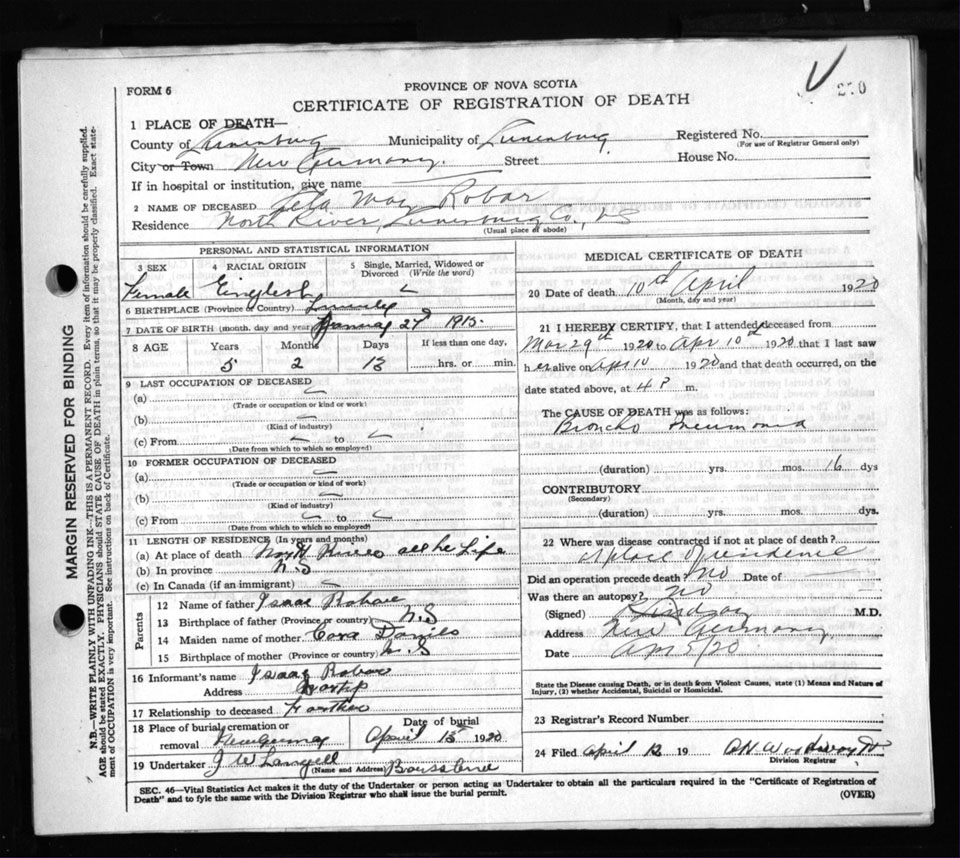 FORM 6
PROVINCE OF NOVA SCOTIA
CERTIFICATE OF REGISTRATION OF DEATH
1 PLACE OF DEATH—
County of Lunenburg Municipality of Lunenburg Registered No.
(For use of Registrar General only)
City or Town New Germany Street House No.
If in hospital or institution, give name
2 NAME OF DECEASED May Robar
Residence North River, Lunenburg Co., NS
(Usual place of abode)
PERSONAL AND STATISTICAL INFORMATION
3 SEX 4 RACIAL ORIGIN 5 Single, Married, Widowed or Divorced (Write the word)
Female English
6 BIRTHPLACE (Province or Country)
7 DATE OF BIRTH (month, day and year) 1915
8 AGE Years Months Days If less than one day,
5 2 13 hrs. or min.
9 LAST OCCUPATION OF DECEASED
(a)
(Trade or occupation or kind of work)
(b)
(Kind of industry)
(c) From to
(Date from which to which so employed)
10 FORMER OCCUPATION OF DECEASED
(a)
(Trade or occupation or kind of work)
(b)
(Kind of industry)
(c) From to
(Date from which to which so employed)
11 LENGTH OF RESIDENCE (In years and months)
(a) At place of death all he Life
(b) In province N.S
(c) In Canada (if an immigrant)
Parents
12 Name of father Isaac
13 Birthplace of father (Province or country) N.S
14 Maiden name of mother Cora
15 Birthplace of mother (Province or country) N.S
16 Informant's name Isaac
Address
17 Relationship to deceased
18 Place of burial, cremation or removal Date of burial
April 1920
19 Undertaker J W Langell
(Name and Address)
MEDICAL CERTIFICATE OF DEATH
20 Date of death 10th April 1920
(Month, day and year)
21 I HEREBY CERTIFY, that I attended deceased from
Mar 29th 1920 to Apr 10th 1920 that I last saw
her alive on Apr 10 1920 and that death occurred, on the
date stated above, at 4 P m.
The CAUSE OF DEATH was as follows:
Broncho Pneumonia
(duration) yrs. mos. 16 dys
CONTRIBUTORY
(Secondary)
(duration) yrs. mos. dys.
22 Where was disease contracted if not at place of death?
At place of residence
Did an operation precede death? No Date of
Was there an autopsy? No
(Signed) M.D.
Address New Germany
Date /20
State the Disease causing Death, or in death from Violent Causes, state (1) Means and Nature of
Injury, (2) whether Accidental, Suicidal or Homicidal.
23 Registrar's Record Number
24 Filed April 12 19
Division Registrar
SEC. 46—Vital Statistics Act makes it the duty of the Undertaker or person acting as Undertaker to obtain all the particulars required in the "Certificate of Registration of
Death" and to fyle the same with the Division Registrar who shall issue the burial permit. (OVER)
MARGIN RESERVED FOR BINDING
N.B.—WRITE PLAINLY WITH UNFADING INK—THIS IS A PERMANENT RECORD. Every item of information should be carefully supplied.
AGE should be stated EXACTLY. PHYSICIANS should STATE CAUSE OF DEATH in plain terms, so that it may be properly classified. Exact state-
ment of OCCUPATION is very important. See instructions on back of Certificate.